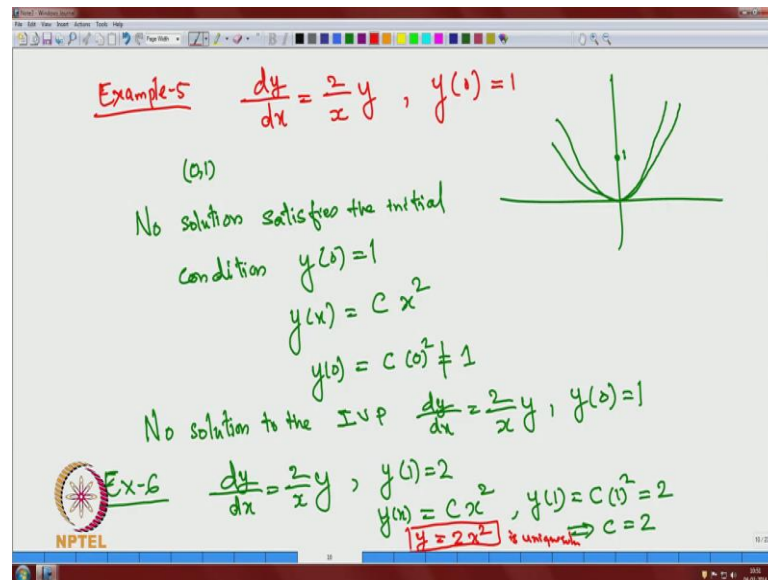 Note1 - Windows Journal
File Edit View Insert Actions Tools Help
Page Width
Example-5 dy/dx = 2/x y , y(0) = 1
1
(0,1)
No solution satisfies the initial
condition y(0) = 1
y(x) = C x²
y(0) = C (0)² ≠ 1
No solution to the IVP dy/dx = 2/x y, y(0) = 1
Ex-6 dy/dx = 2/x y , y(1) = 2
y(x) = Cx² , y(1) = C(1)² = 2
y = 2x² is unique ⇒ C = 2
NPTEL
10:51